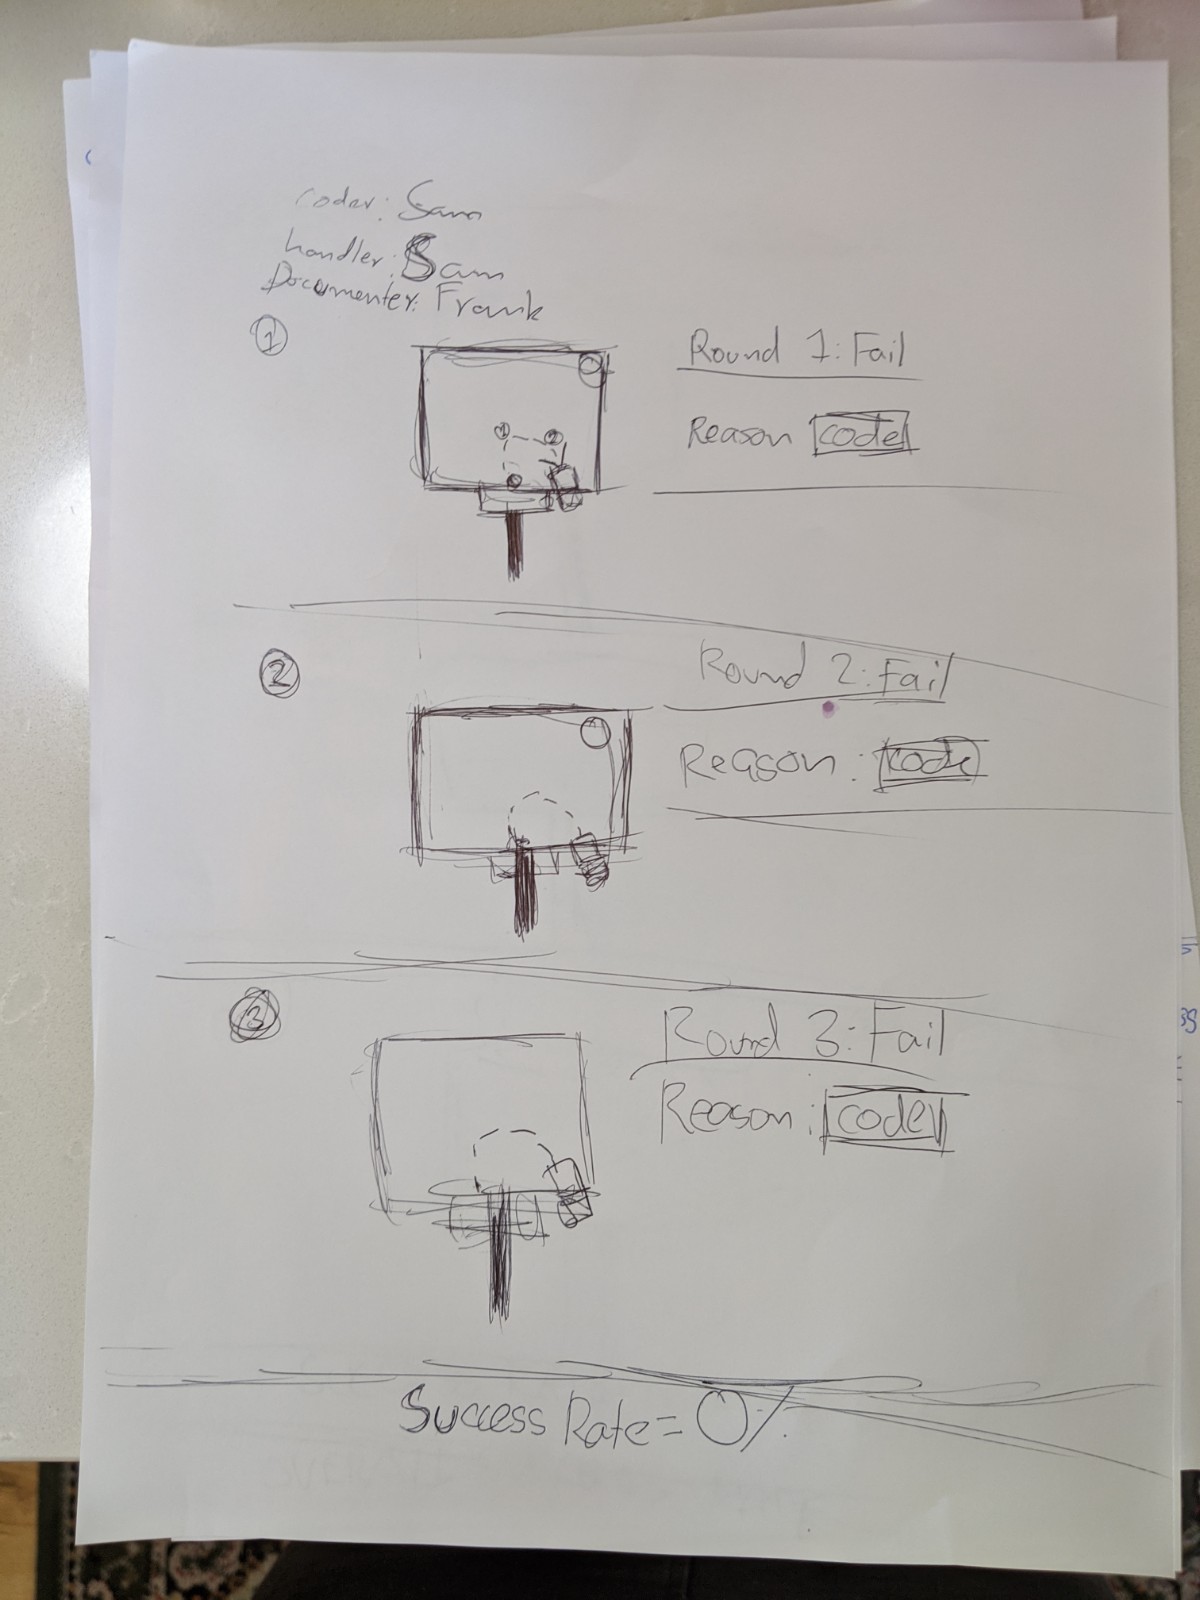 coder: Sam
handler: Sam
Documenter: Frank
1
Round 1: Fail
Reason code
1 2
2
Round 2: Fail
Reason: code
3
Round 3: Fail
Reason: code
Success Rate = 0%